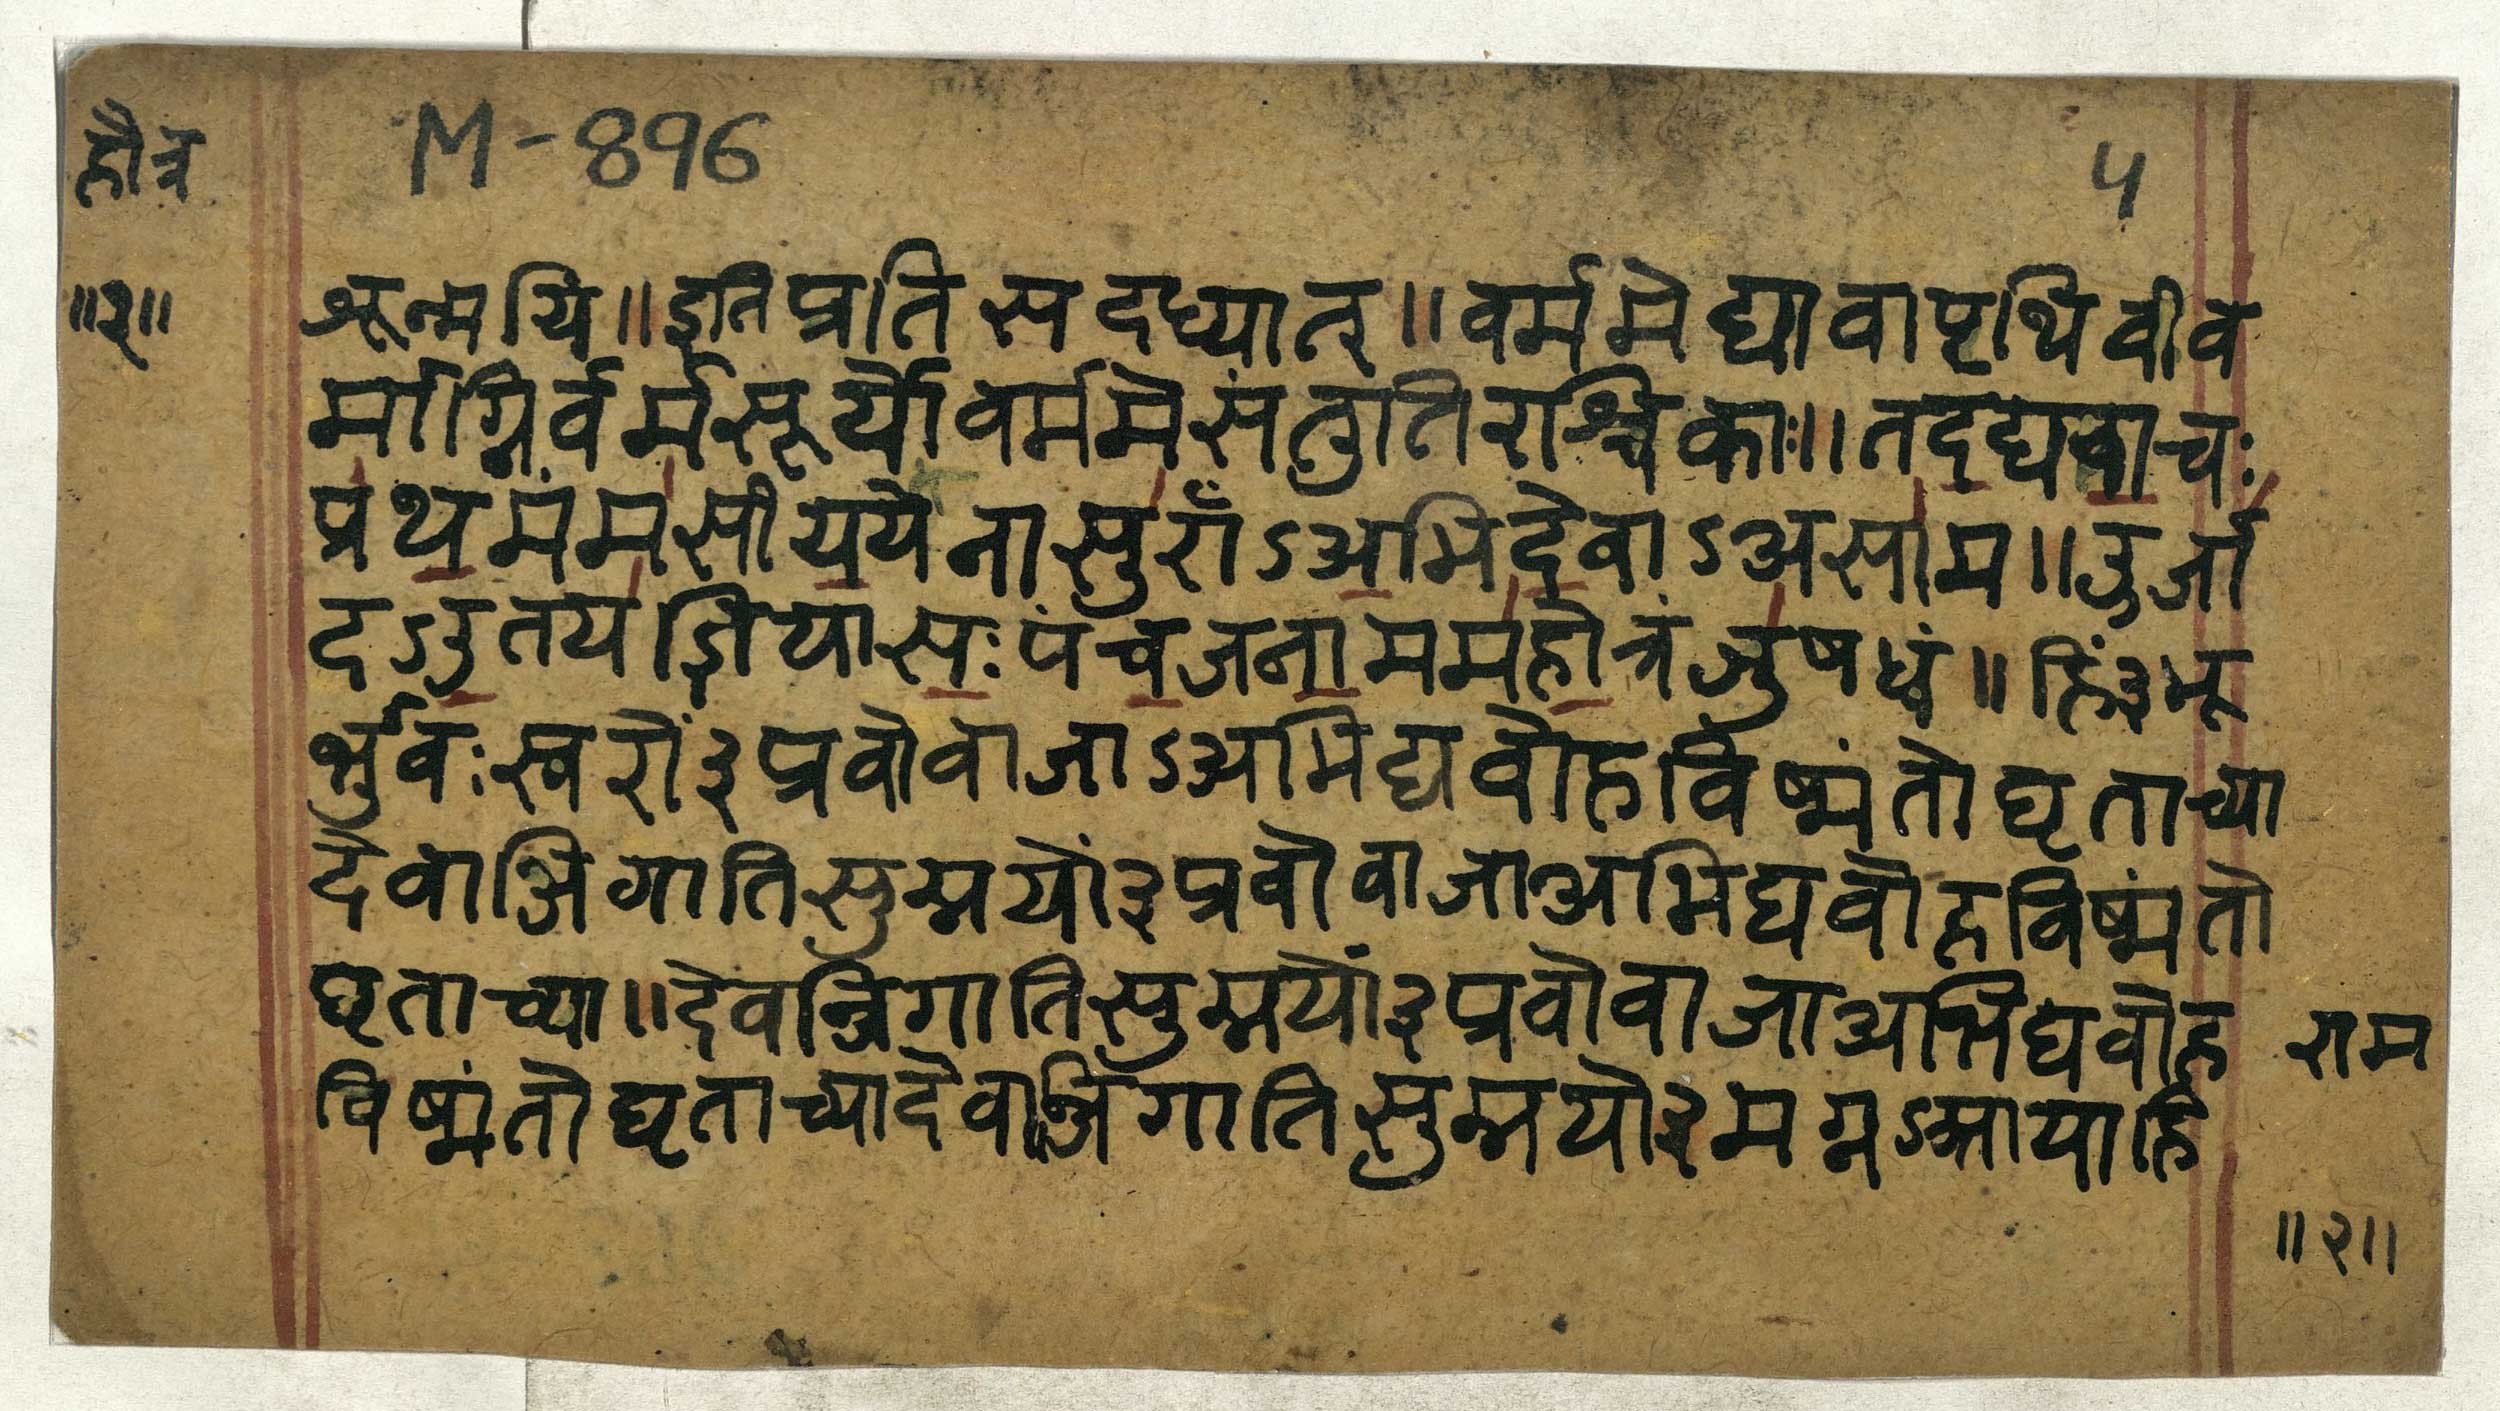 हौत्र
M-896
५
॥२॥
श्रून्मयि॥इतिप्रतिसदध्यात्॥वर्ममेद्यावापृथिवीव
र्माग्निर्वर्मसूर्योवर्ममेसंतुतिरश्चिकाः॥तदद्यवाचः
प्रथमंमसीययेनासुराँऽअभिदेवाऽअसाम॥उर्जा
दऽउतयज्ञियासःपंचजनाममहोत्रंजुषध्वं॥हिं३भू
र्भुवःस्वरों३प्रवोवाजाऽअभिद्यवोहविष्मंतोघृताच्या
देवाञ्जिगातिसुम्नयों३प्रवोवाजाअभिद्यवोहविष्मंतो
घृताच्या॥देवन्जिगातिसुम्नयों३प्रवोवाजाअभिद्यवोह
विष्मंतोघृताच्यादेवान्जिगातिसुम्नयो३मग्नऽआयाहि
राम
॥२॥